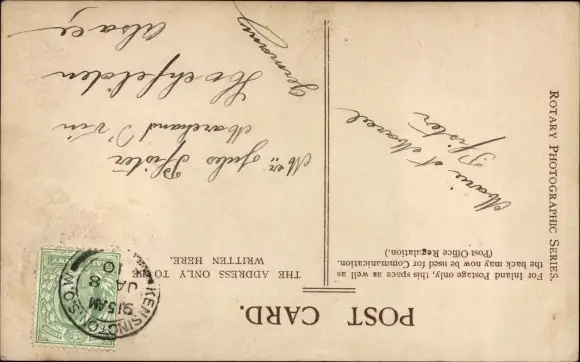 POST CARD.
For Inland Postage only, this space as well as
the back may now be used for Communication.
(Post Office Regulation.)
THE ADDRESS ONLY TO BE
WRITTEN HERE.
KENSINGTON S.O.W.
9.15 AM
JA 8
10
Marie et Marcel
Pfister
Mr Jules Pfister
Marchand d'vin
Hochfelden
Alsace
Germany
ROTARY PHOTOGRAPHIC SERIES.